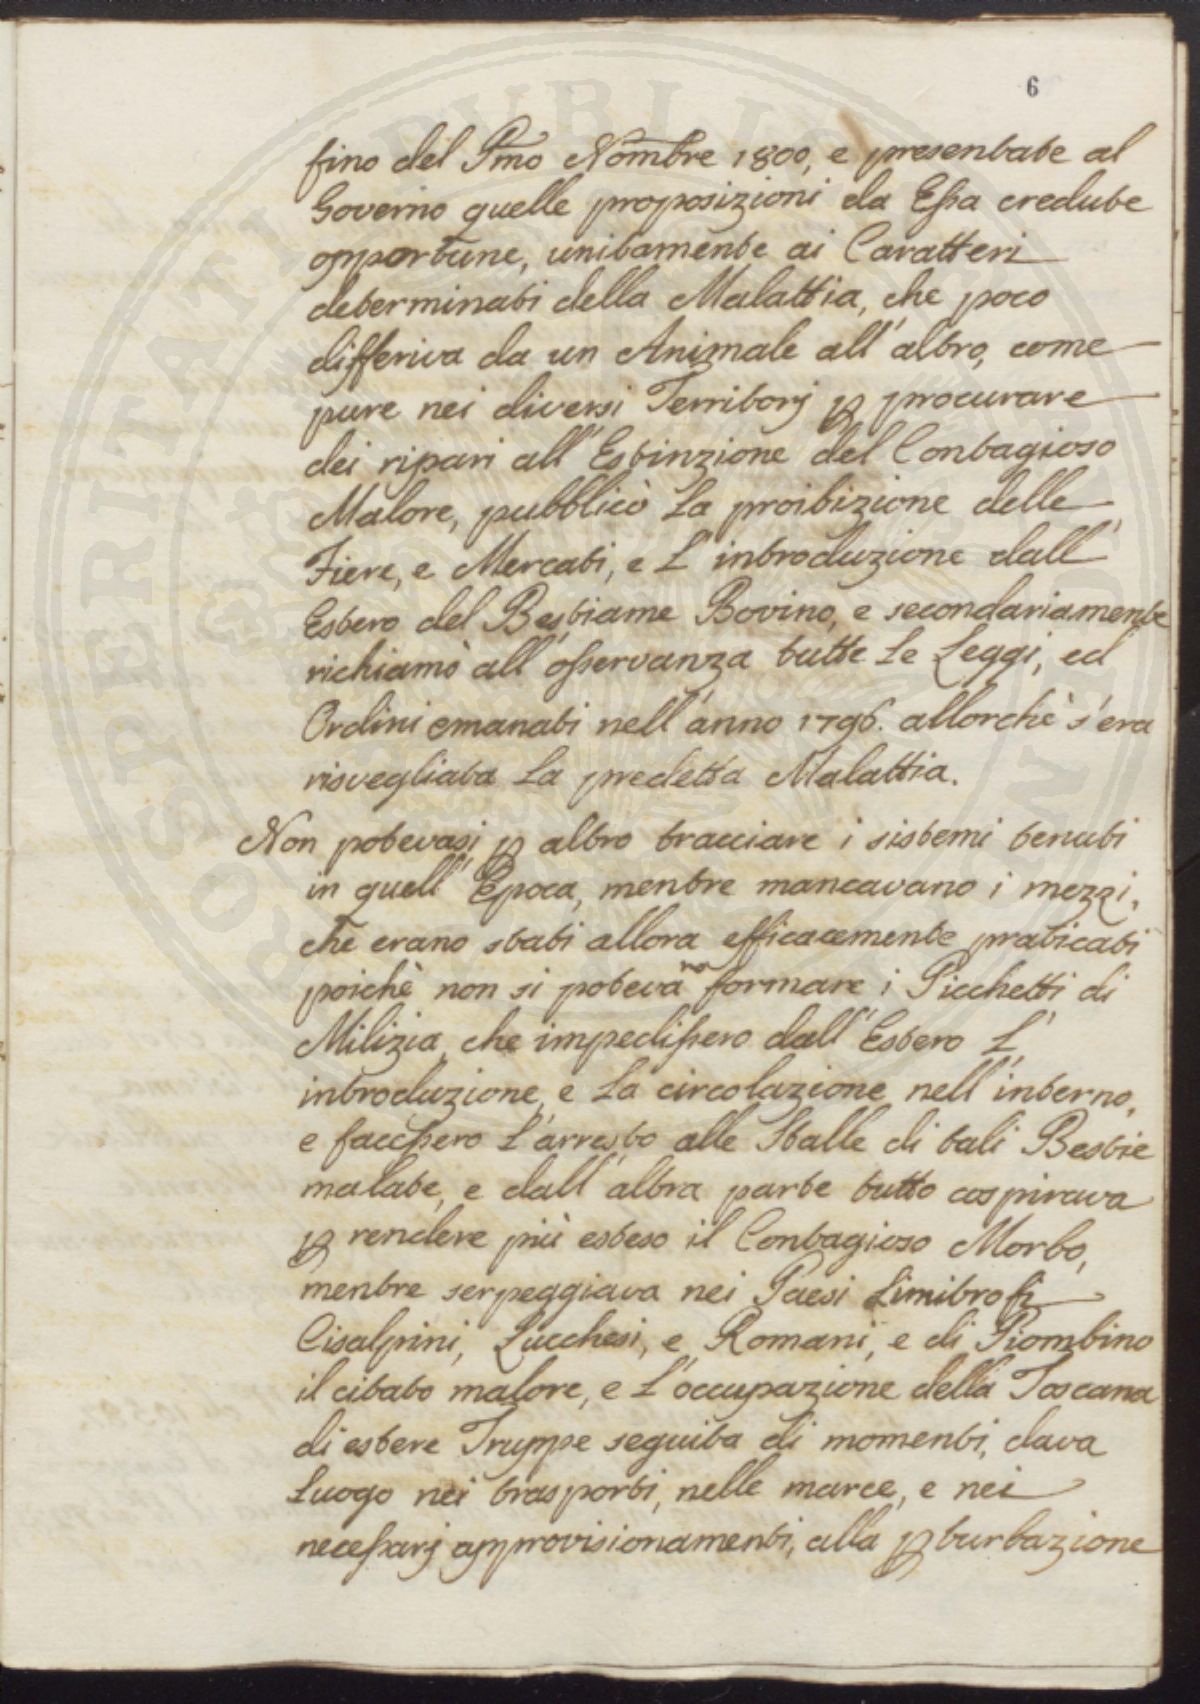 6
fino del Pmo Nombre 1800, e presentate al
Governo quelle proposizioni da Essa credute
opportune, unitamente ai Caratteri
determinati della Malattia, che poco
differiva da un Animale all'altro, come
pure nei diversi Territorj ꝑ procurare
dei ripari all'Estinzione del Contagioso
Malore, pubblicò La proibizione delle
Fiere, e Mercati, e L'introduzione dall'
Estero del Bestiame Bovino, e secondariamente
richiamò all'osservanza tutte Le Leggi, ed
Ordini emanati nell'anno 1796. allorchè s'era
risvegliata La predetta Malattia.
Non potevasi ꝑ altro tracciare i sistemi tenuti
in quell'Epoca, mentre mancavano i mezzi,
che erano stati allora efficacemente praticati
poichè non si poteva no formare i Picchetti di
Milizia, che impedissero dall'Estero L'
introduzione, e La circolazione nell'interno,
e facessero L'arresto alle Stalle di tali Bestie
malate, e dall'altra parte tutto cospirava
ꝑ rendere più esteso il Contagioso Morbo,
mentre serpeggiava nei Paesi Limitrofi
Cisalpini, Lucchesi, e Romani, e di Piombino
il citato malore, e L'occupazione della Toscana
di estere Truppe seguita di momenti, dava
Luogo nei trasporti, nelle marce, e nei
necessarj approvisionamenti, alla ꝑturbazione
PROSPERITATI PUBLICAE